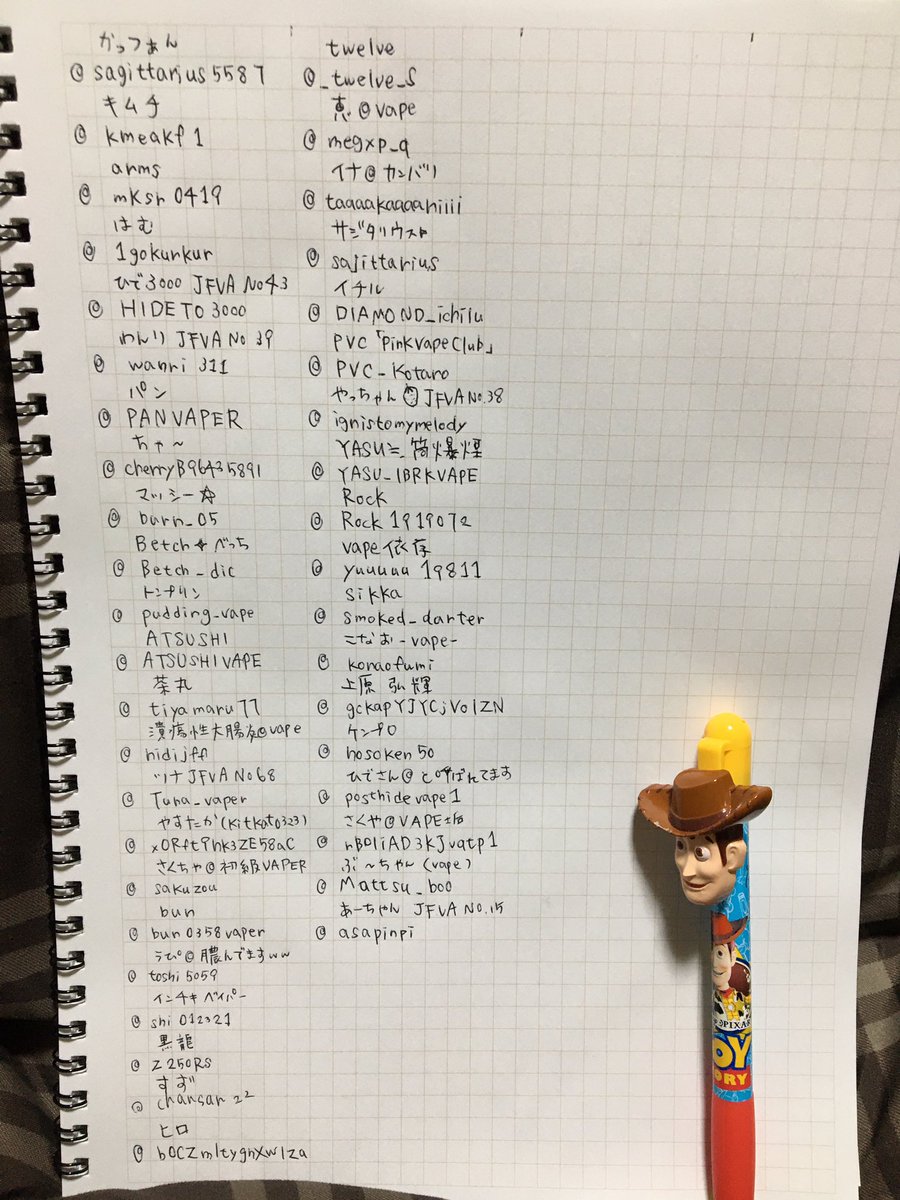 かっつぁん
@sagittarius5587
キムチ
@kmeakf1
arms
@mksr0419
はむ
@1gokurkur
ひで3000 JFVA No43
@HIDETO3000
わんり JFVA No 39
@wanri 311
パン
@PANVAPER
ちゃ~
@cherryB96435891
マッシー☆
@burn_05
Betch✦べっち
@Betch_dic
トンプリン
@pudding_vape
ATSUSHI
@ATSUSHIVAPE
茶丸
@tiyamaru77
潰瘍性大腸炎@vape
@nidijff
ツナ JFVA No68
@Tuna_vaper
やすたか(kitkat0323)
@xORft9hk3ZE58aC
さくちゃ@初級VAPER
@sakuzou
bun
@bun0358vaper
うぴ@膿んでますww
@toshi5059
インチキベイパー
@shi012321
黒龍
@Z250RS
すず
@chansan22
ヒロ
@b0CZmltygnXwlza
twelve
@_twelve_S
恵@vape
@megxp_q
イナ@カンバリ
@taaaakaaaaniiii
サジタリウスト
@sajittarius
イチル
@DIAMOND_ichilu
PVC「PinkVapeClub」
@PVC_Kotaro
やっちゃん JFVA No.38
@ignistomymelody
YASU≒筒爆煙
@YASU_IBRKVAPE
Rock
@Rock1919072
vape依存
@yuuuuu19811
sikka
@smoked_darter
こなお-vape-
@konaofumi
上原 弘輝
@gckapYJYCjVolZN
ケンプロ
@hosoken50
ひでさん@と呼ばれてます
@posthidevape1
さくや@VAPE垢
@nB0liAD3kJvatp1
ぶ~ちゃん(vape)
@Mattsu_boo
あーちゃん JFVA No.15
@asapinpi
PIXAR
TOY
STORY